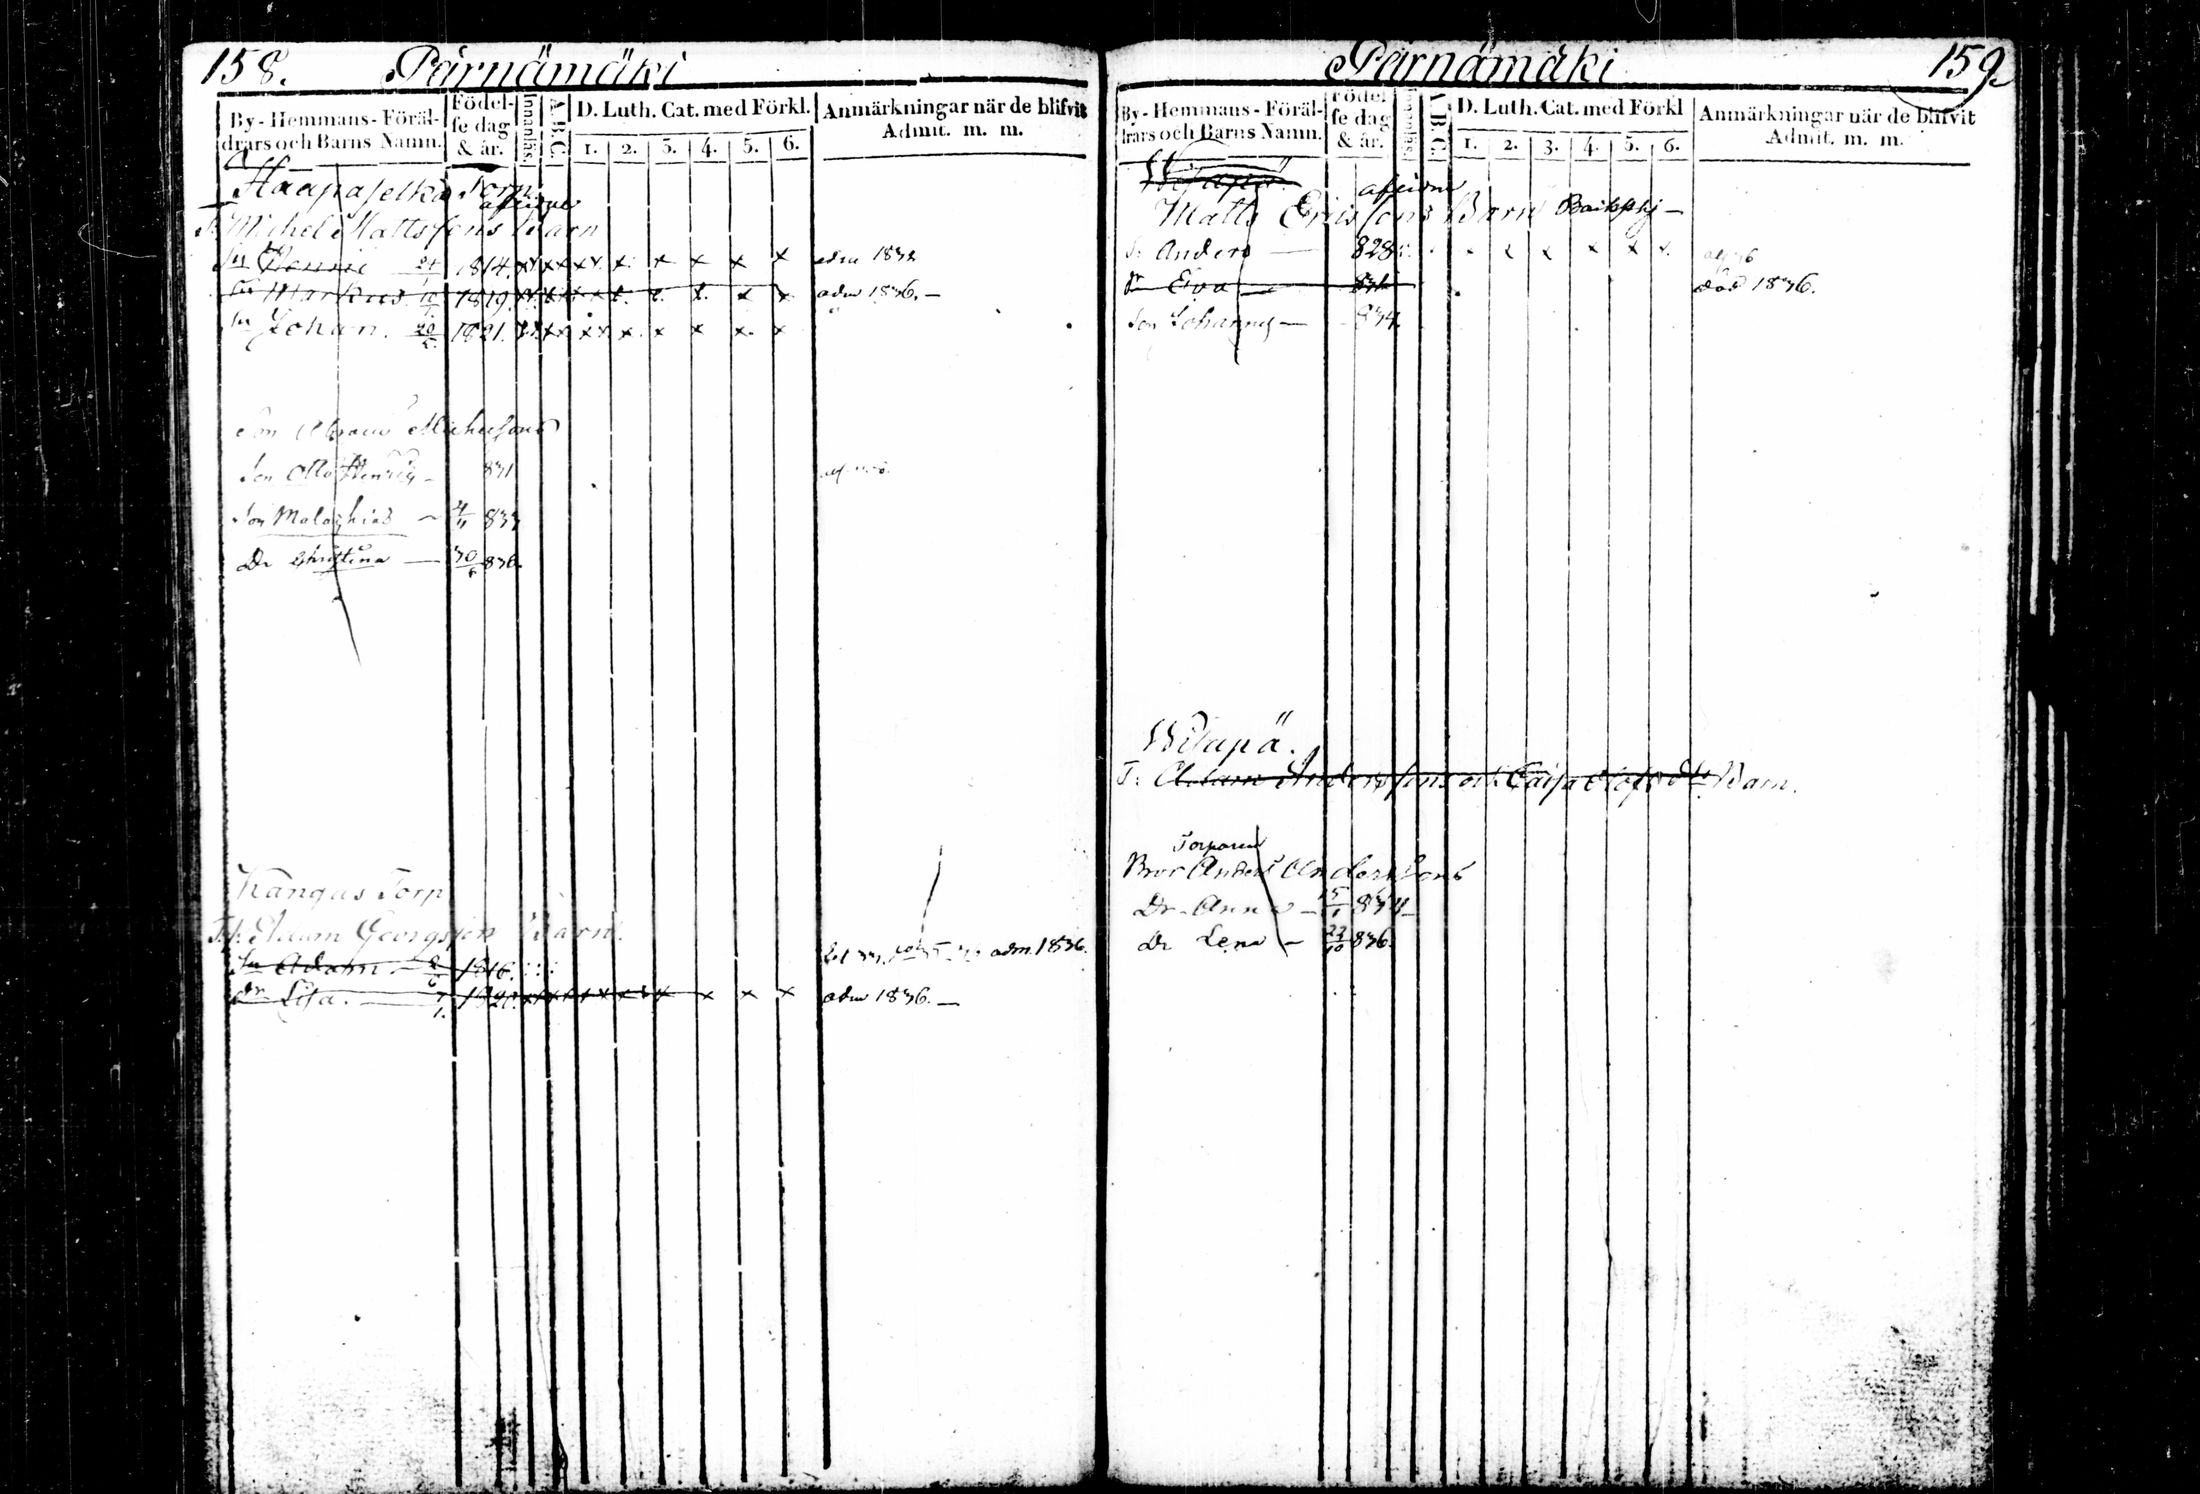 158. Pärnämäki
By-Hemmans-Föräl-
drars och Barns Namn.
Födel-
se dag
& år.
Innanläs.
A.B.C.
D. Luth. Cat. med Förkl.
1. 2. 3. 4. 5. 6.
Anmärkningar när de blifvit
Admit. m. m.
Haapaselkä Torp
T. Michel Mattssons Barn
Sn Henric 24 1814. x x x x x x adm 1832
Sn Markus 1819. x x adm 1836. —
Sn Johan. 20 1821. x x x x x x
Son Abram Michelsons
Son Otto Henric — 831
Son Malachias — 4/11 833
Dr Christina — 30/6 836.
Kangas Torp
Adam Georgsson Barn.
Sn Adam. 2/6 1816. adm. 1836.
Dr Lisa. — 7/1. 1820. x x x adm 1836. —
Pärnämäki 159.
By-Hemmans-Föräl-
drars och Barns Namn.
Födel-
se dag
& år.
Innanläs.
A.B.C.
D. Luth. Cat. med Förkl
1. 2. 3. 4. 5. 6.
Anmärkningar när de blifvit
Admit. m. m.
Wisapä.
Matts Ericssons Barn
S. Anders — 828 x x x x x
Dr Eva — död 1836.
Son Johannes — 834.
Wisapä.
T: Adam Anderssons och Caisa Olofsdrs Barn.
Torparen
Bror Anders Anderssons
Dr. Anna — 834 —
Dr Lena — 22/10 836.